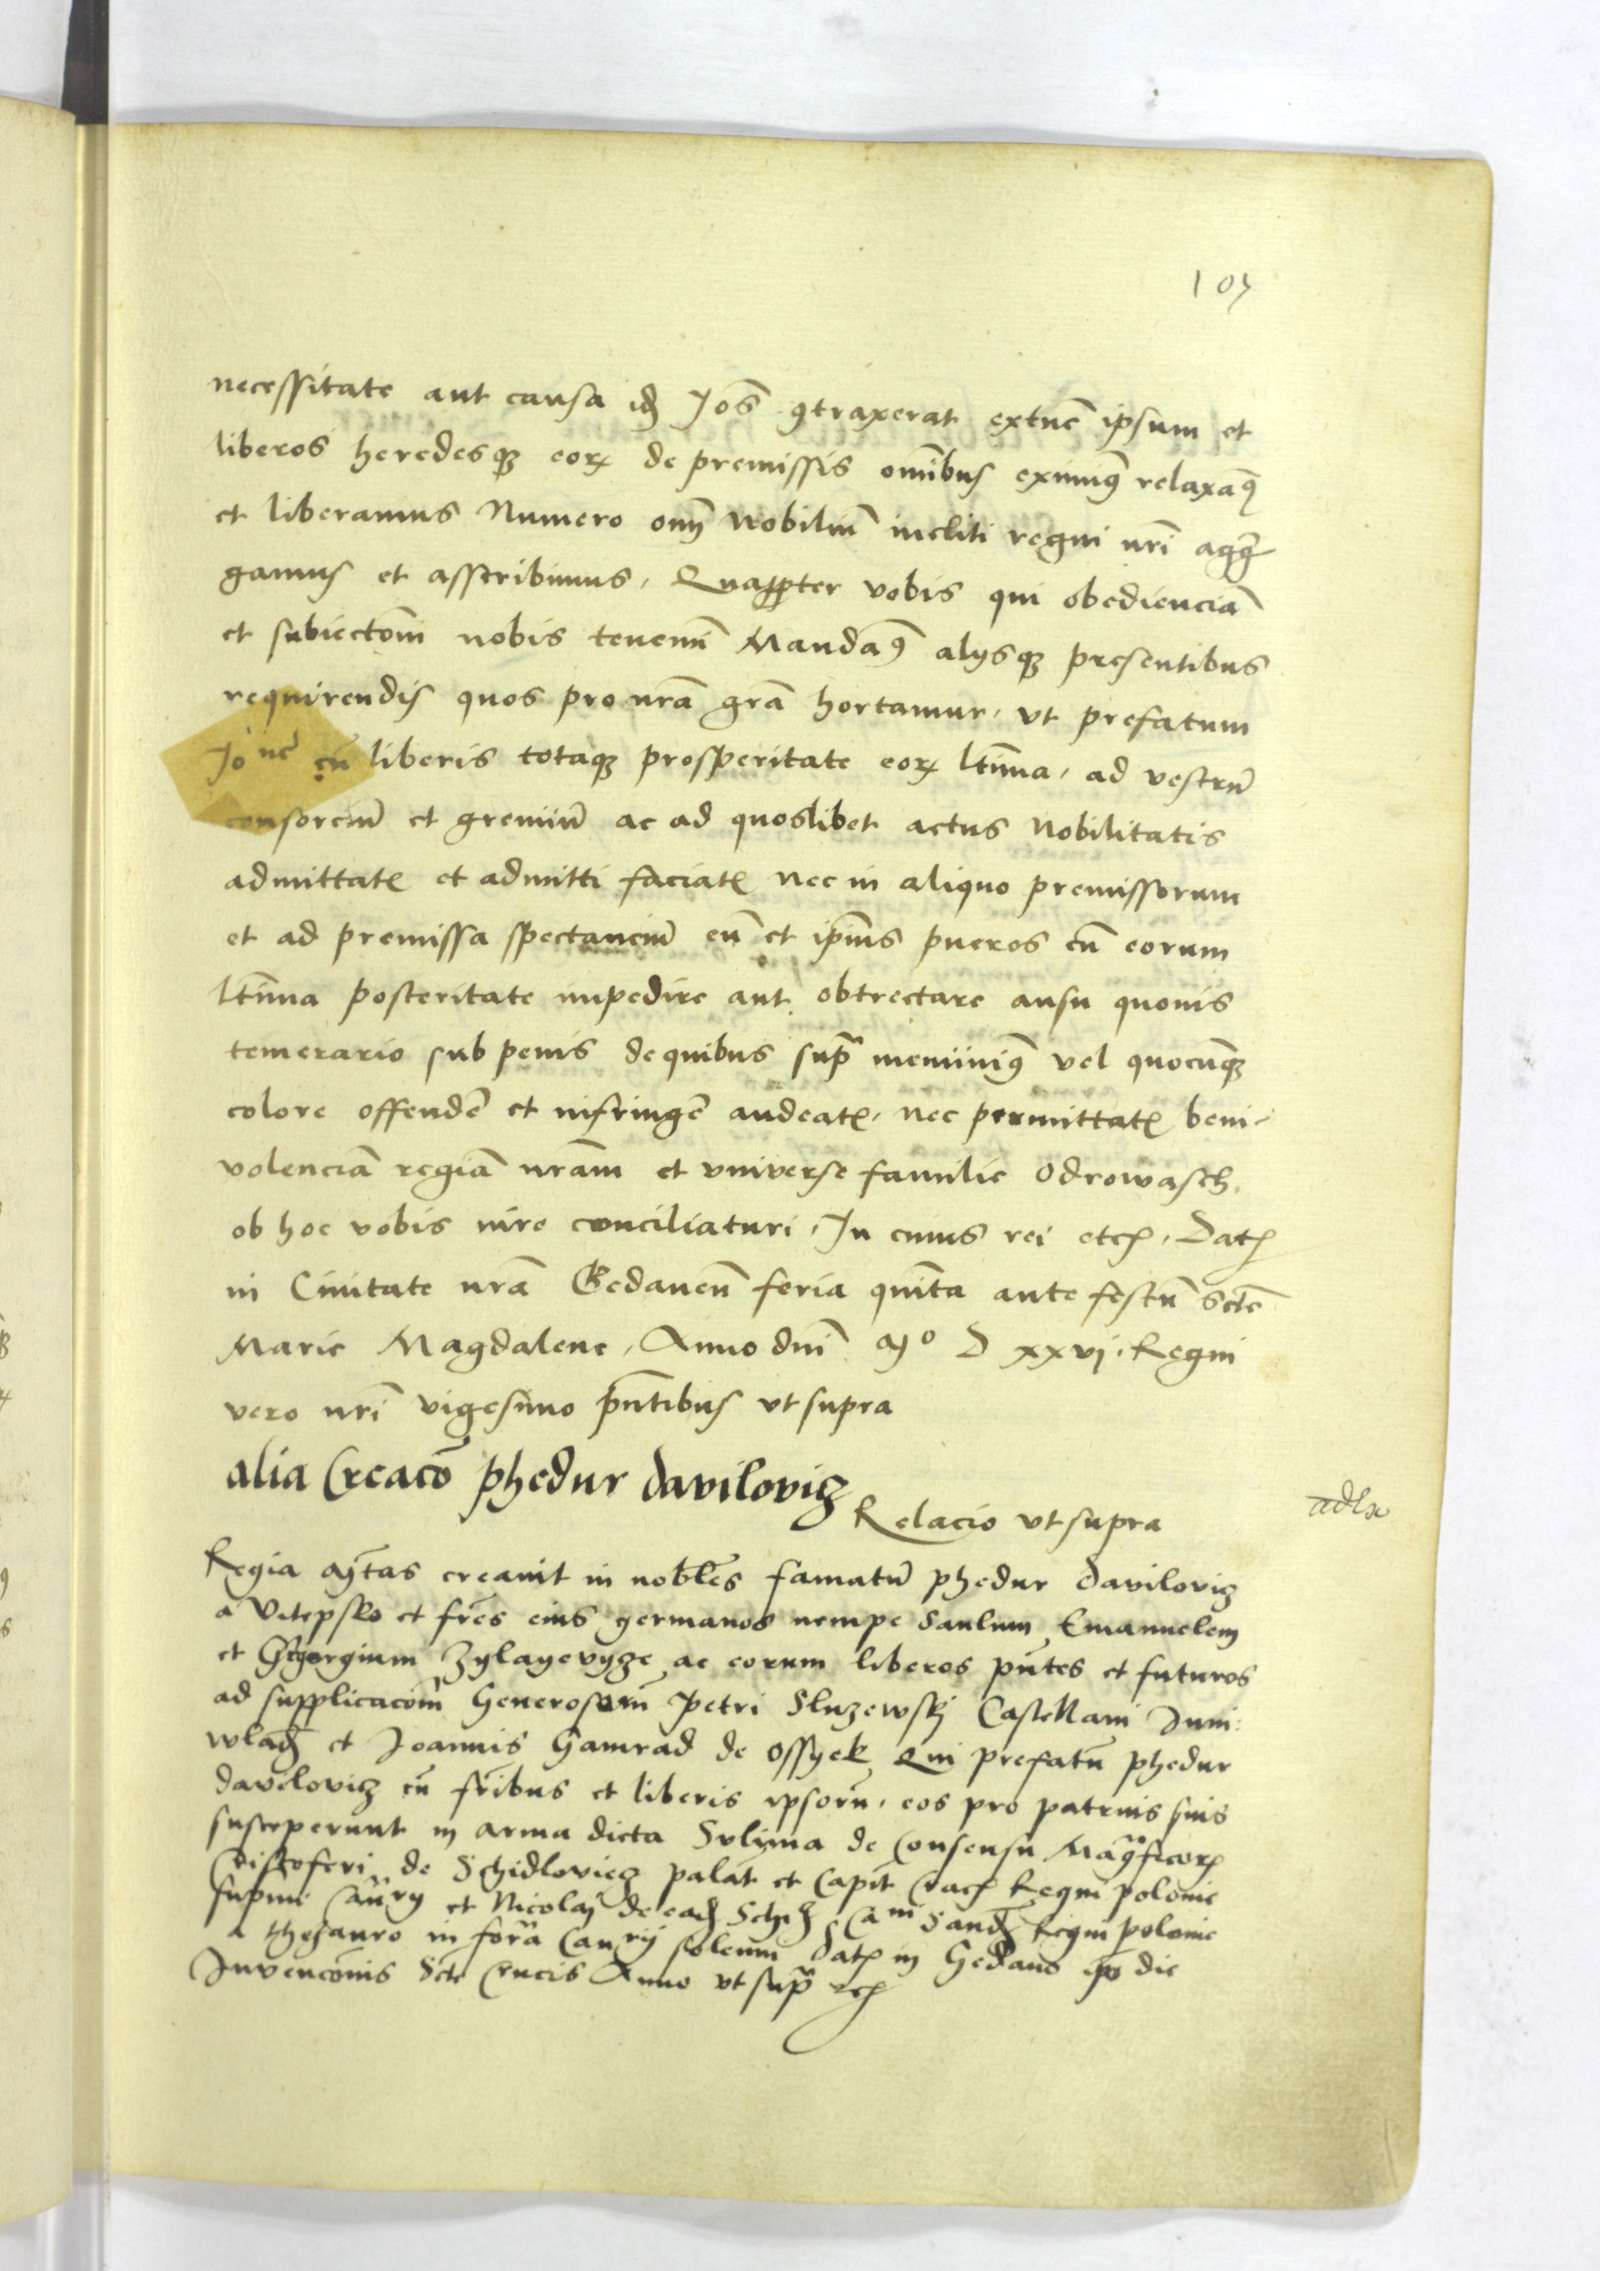 107
necessitate aut causa id Jōs 9traxerat extūc ipsum et
liberos heredesqȝ eorꝝ de premissis om̄ibus eximiꝰ relaxaꝰ
et liberamus Numero om̄ Nobiliū incliti regni nr̄i aggre
gamus et asscribimus, Quaꝓpter vobis qui obedienciā
et subiectōni nobis tenemī Mandaꝰ alysqȝ presentibus
requirendis quos pro nrā grā hortamur, vt prefatum
Jonē cū liberis totaqȝ prosperitate eorꝝ ltīma, ad vestrū
consorciū et gremiū ac ad quoslibet actus Nobilitatis
admittatꝭ et admitti faciatꝭ nec in aliquo premissorum
et ad premissa spectanciū eū et ip̄ius pueros cū eorum
ltīma posteritate impedire aut obtrectare ausu quouis
temerario sub penis de quibus sup̄ meminiꝰ vel quocūqȝ
colore offendē et infringē audeatꝭ, nec permittatꝭ beni-
volenciā regiā nrām et vniverse familie Odrowasch
ob hoc vobis mire conciliaturi, In cuius rei etcꝭ, Datꝭ
in Ciuitate nrā Gedanen̄ feria quīta ante festū Sctē
Marie Magdalene, Anno dn̄i Mͦ D xxvi, Regni
vero nr̄i vigesimo pn̄tibus vt supra
alia Creacō phedur davilovicz
Relacio vt supra
adlx
Regia Mtas creauit in nobles famatū phedur davilovicz
a Vitepsko et frēs eius germanos nempe Saulum Emanuelem
et Georgium Zylayevycze ac eorum liberos pn̄tes et futuros
ad supplicacōm Generosorū Petri Sluzewskj Castellani Juni
wladꝭ et Joannis Gamrad de Ossyek Qui prefatū phedur
davilovicz cū fr̄ibus et liberis ipsorū, eos pro patruis suis
susceperunt in arma dicta Sulima de consensu Magficorꝝ
Cristoferi de Schidloviecz palat et Capit Cracꝭ Regni polonie
supmi Cancry et Nicolaj de eadꝭ Schiꝭ Cani Sandꝭ Regni polonie
a thezauro in forā Canrij solenni datꝭ in Gedano ipo die
Invencōnis Scte Crucis Anno vt sup̄ etcꝭ